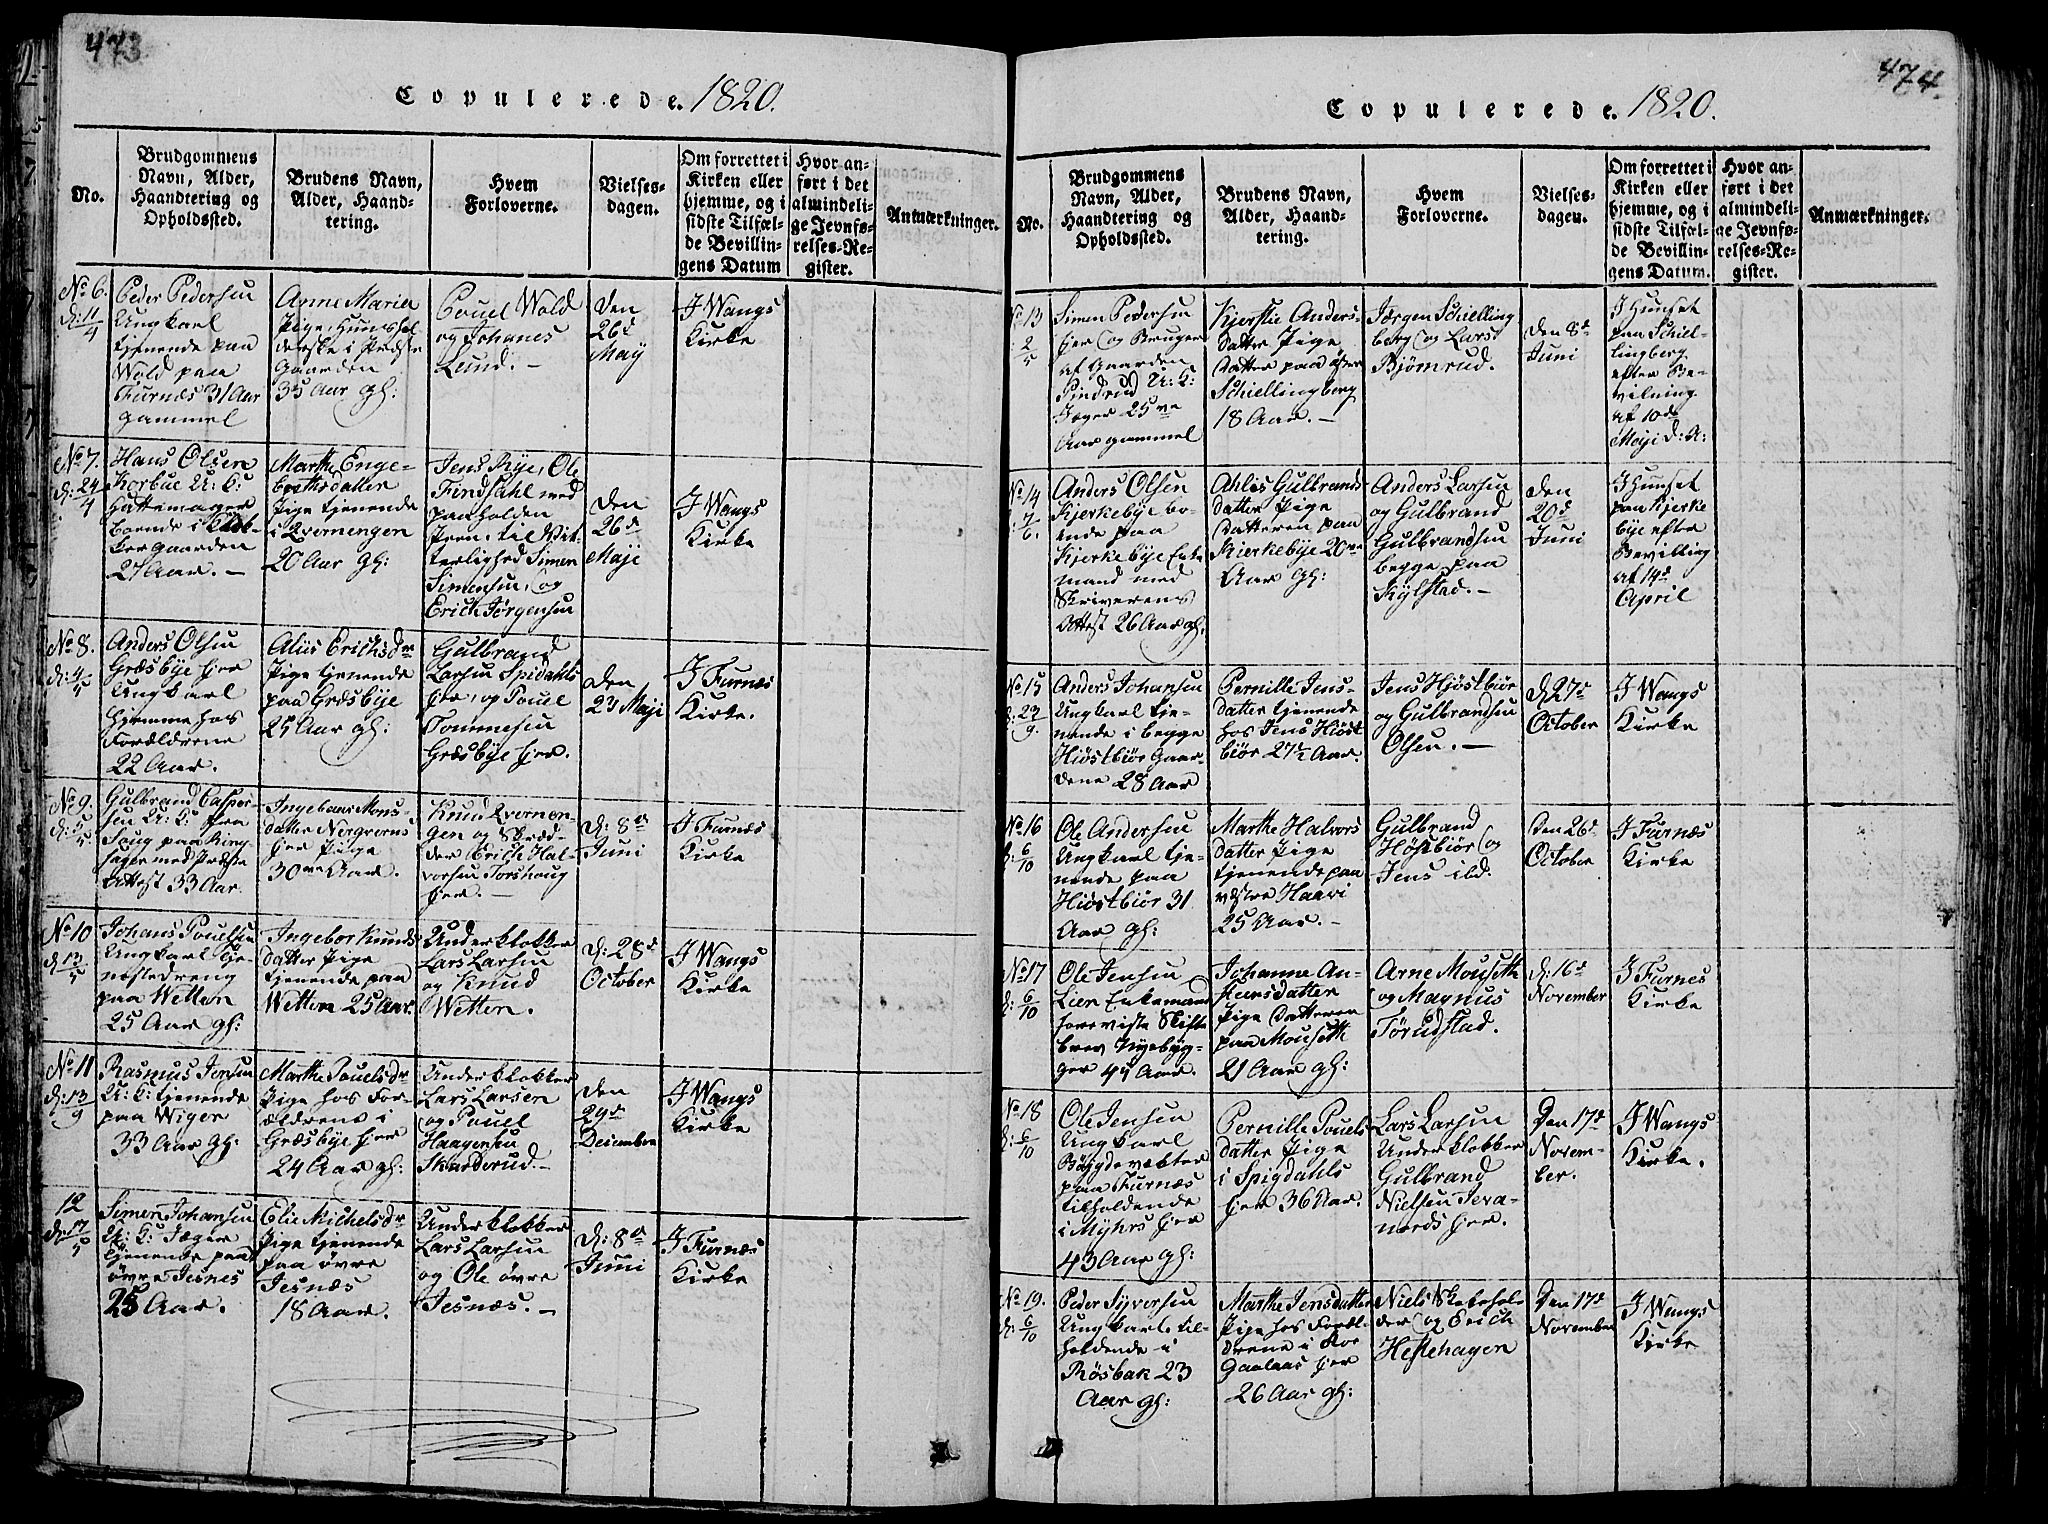 473
Copulerede. 1820.
No.
Brudgommens
Navn, Alder,
Haandtering og
Opholdssted.
Brudens Navn,
Alder, Haand-
tering.
Hvem
Forloverne.
Vielses-
dagen.
Om forrettet i
Kirken eller
hjemme, og i
sidste Tilfæl-
de Bevillin-
gens Datum
Hvor an-
ført i det
almindeli-
ge Jevnfø-
relses-Re-
gister.
Anmærkninger.
No 6.
d: 11/4
Peder Pedersen
Ungkarl
tjenende paa
Wold paa
Furnæs 31 Aar
gammel
Anne Maria
Pige, Huushol-
derske i Præste
Gaarden
35 Aar gl:
Pouel Wold
og Johanes
Lund. –
Den
26d
May
I Wangs
Kirke
No 7.
d: 24/4
Hans Olsen
Korbue U: K:
Hattemager
boende i
gaarden
27 Aar. –
Marthe Enge-
brettsdatter
Pige tjenende
i Qverningen
20 Aar gl:
Jens Rye, Ole
Findsahl med
paaholden
Pen, til Vit-
terlighed Simen
Simensen, og
Erich Jørgensen
Den
26d
Maji
I Wangs
Kirke
No 8.
d: 4/5
Anders Olsen
Græsbye Ejer
Ungkarl
hjemme hos
Forældrene
22 Aar.
Aliis Erichsdr
Pige tjenende
paa Græsbye
25 Aar gl:
Gulbrand
Larsen Spidahls
Ejer, og Pouel
Tommesen
Græsbye Ejer.
Den
23 Maji
I Furnæs
Kirke.
No 9.
d: 5/5
Gulbrand Casper-
sen U: K: fra
Saug paa Ring-
sager med Præste
Attest 33 Aar.
Ingebaar Mons-
datter Norqverns
Ejer Pige
30ve Aar.
Knud Qvernen-
gen og Skræd-
der Erich Hal-
vorsen Torshoug
Ejer. –
d: 8de
Juni
I Furnæs
Kirke
No 10
d: 13/5
Johans Pouelsen
Ungkarl Tje-
nestedreng
paa Wetten
25 Aar gl:
Ingebor Knuds
datter Pige
tjenende paa
Wetten 25 Aar.
Underklokker
Lars Larsen
og Knud
Wetten.
d: 28d
October
I Wangs
Kirke
No 11
d: 13/9
Rasmus Jensen
U: K: tjenende
paa Wiger
33 Aar gl:
Marthe Pouelsdr
Pige hos For-
ældrene i
Græsbye Ejer
24 Aar gl:
Underklokker
Lars Larsen
og Pouel
Haagensen
Skarderud. –
Den
29d
Desember
I Wangs
Kirke
12
d: 17/5
Simen Johansen
U: K: Jæger
tjenende paa
øvre Jesnes
25 Aar.
Elie Michelsdr
Pige tjenende
paa øvre
Jesnæs
18 Aar.
Underklokker
Lars Larsen
og Ole øvre
Jesnæs. –
d: 8de
Juni
I Furnæs
Kirke
474.
Copulerede. 1820.
No.
Brudgommens
Navn, Alder,
Haandtering og
Opholdssted.
Brudens Navn,
Alder, Haand-
tering.
Hvem
Forloverne.
Vielses-
dagen.
Om forrettet i
Kirken eller
hjemme, og i
sidste Tilfæl-
de Bevillin-
gens Datum.
Hvor an-
ført i det
almindeli-
ge Jevnfø-
relses-Re-
gister.
Anmærkninger.
No 13
2/5
Simen Pedersen
Ejer og Bruger
af Gaarden
Pindrud U: K:
Jæger 25ve
Aar gammel
Kjerstie Anders-
datter Pige
Datter paa øfre
Schiellingberg
18 Aar. –
Jørgen Schielling
berg og Lars
Bjørnrud.
Den 8d
Juni
I Huuset
paa Schiel-
lingberg
efter Be-
vilning
af 10de
Maji d: A:
No 14
7/6.
Anders Olsen
Kjerkebye bo-
ende paa
Kjerkebye Enke
mand med
Skriverens
Attest 26 Aar gl.
Ahlis Gulbrands
datter Pige
Datteren paa
Kierkebye 20ve
Aar gl:
Anders Larsen
og Gulbrand
Gulbrandsen
begge paa
Kylstad. –
Den
20d
Juni
I Huuset
paa Kjerke
bye efter
Bevilling
af 14d
April
No 15
d: 29/9.
Anders Johansen
Ungkarl tje-
nende i begge
Hiøstbiør Gaar
dene 28 Aar
Pernille Jens-
datter tjenende
hos Jens Hiøst
biør 27½ Aar.
Jens Hiøstbiør
og Gulbrandsen
Olsen. –
d: 27d
October
I Wangs
Kirke
No 16
d: 6/10
Ole Andersen
Ungkarl tje-
nende paa
Hiøstbiør 31
Aar gl:
Marthe Halvors
datter Pige
tjenende paa
væstre Haavi
25 Aar. –
Gulbrand
Høstbiør og
Jens ibd.
Den 26d
October
I Furnæs
Kirke
No 17
d: 6/10
Ole Jensen
Lien Enkemand
foreviste Skifte
brev Nyebyg-
ger 45 Aar.
Johanne An-
steensdatter
Pige Datteren
paa Mouseth
21 Aar gl:
Arne Mouseth
og Magnus
Törudstad.
d: 16d
November
I Furnes
Kirke
No 18
d: 6/10
Ole Jensen
Ungkarl
Böygdevækter
paa Furnæs
tilholdende
i Myhrs Ejer
43 Aar gl:
Pernille Pouels
datter Pige
i Spigdahls
Ejer 36 Aar.
Lars Larsen
Underklokker
Gulbrand
Nielsen
Ejer.
Den 17d
Novem-
ber.
I Wangs
Kirke.
No 19.
d: 6/10
Peder Syversen
Ungkarl til-
holdende i
Røsbak 23
Aar gl:
Marthe Jensdatter
Pige hos Foræl-
drene i Kor
Gaalaas Ejer
26 Aar gl:
Niels Skatehol-
der og Erich
Hestehagen
Den 17d
November
I Wangs
Kirke